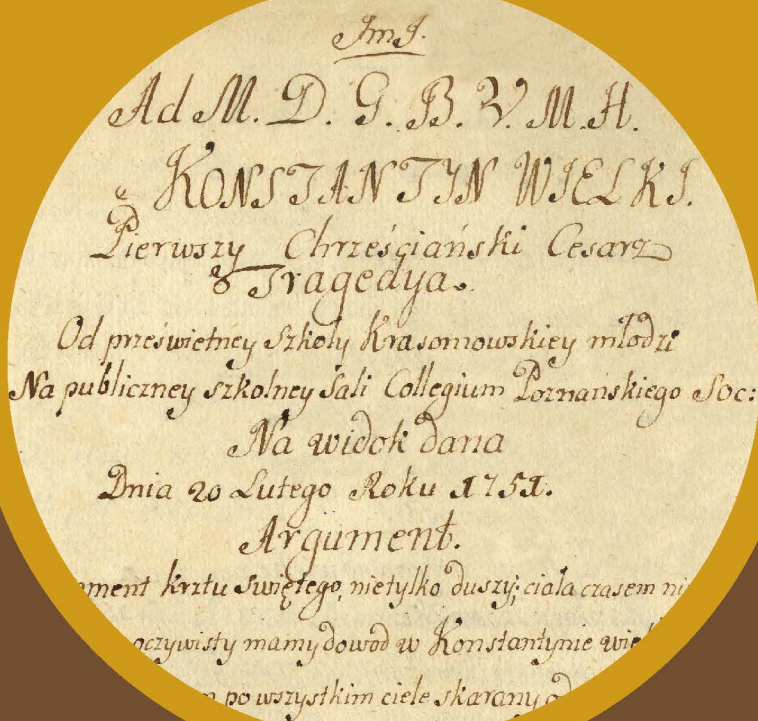 JmJ.
Ad M. D. G. B. V. M. H.
KONSTANTYN WIELKI.
Pierwszy Chrześciański Cesarz
Tragedya.
Od prześwietnéy szkoły Krasomowskiey młodzi
Na publiczney szkolney sali Collegium Poznańskiego Soc:
Na widok dana
Dnia 20 Lutego Roku 1751.
Argument.
ment krztu swiętego, nietylko duszy; ciała czasem
oczywisty mamy dowod w Konstantynie
po wszystkim ciele skarany